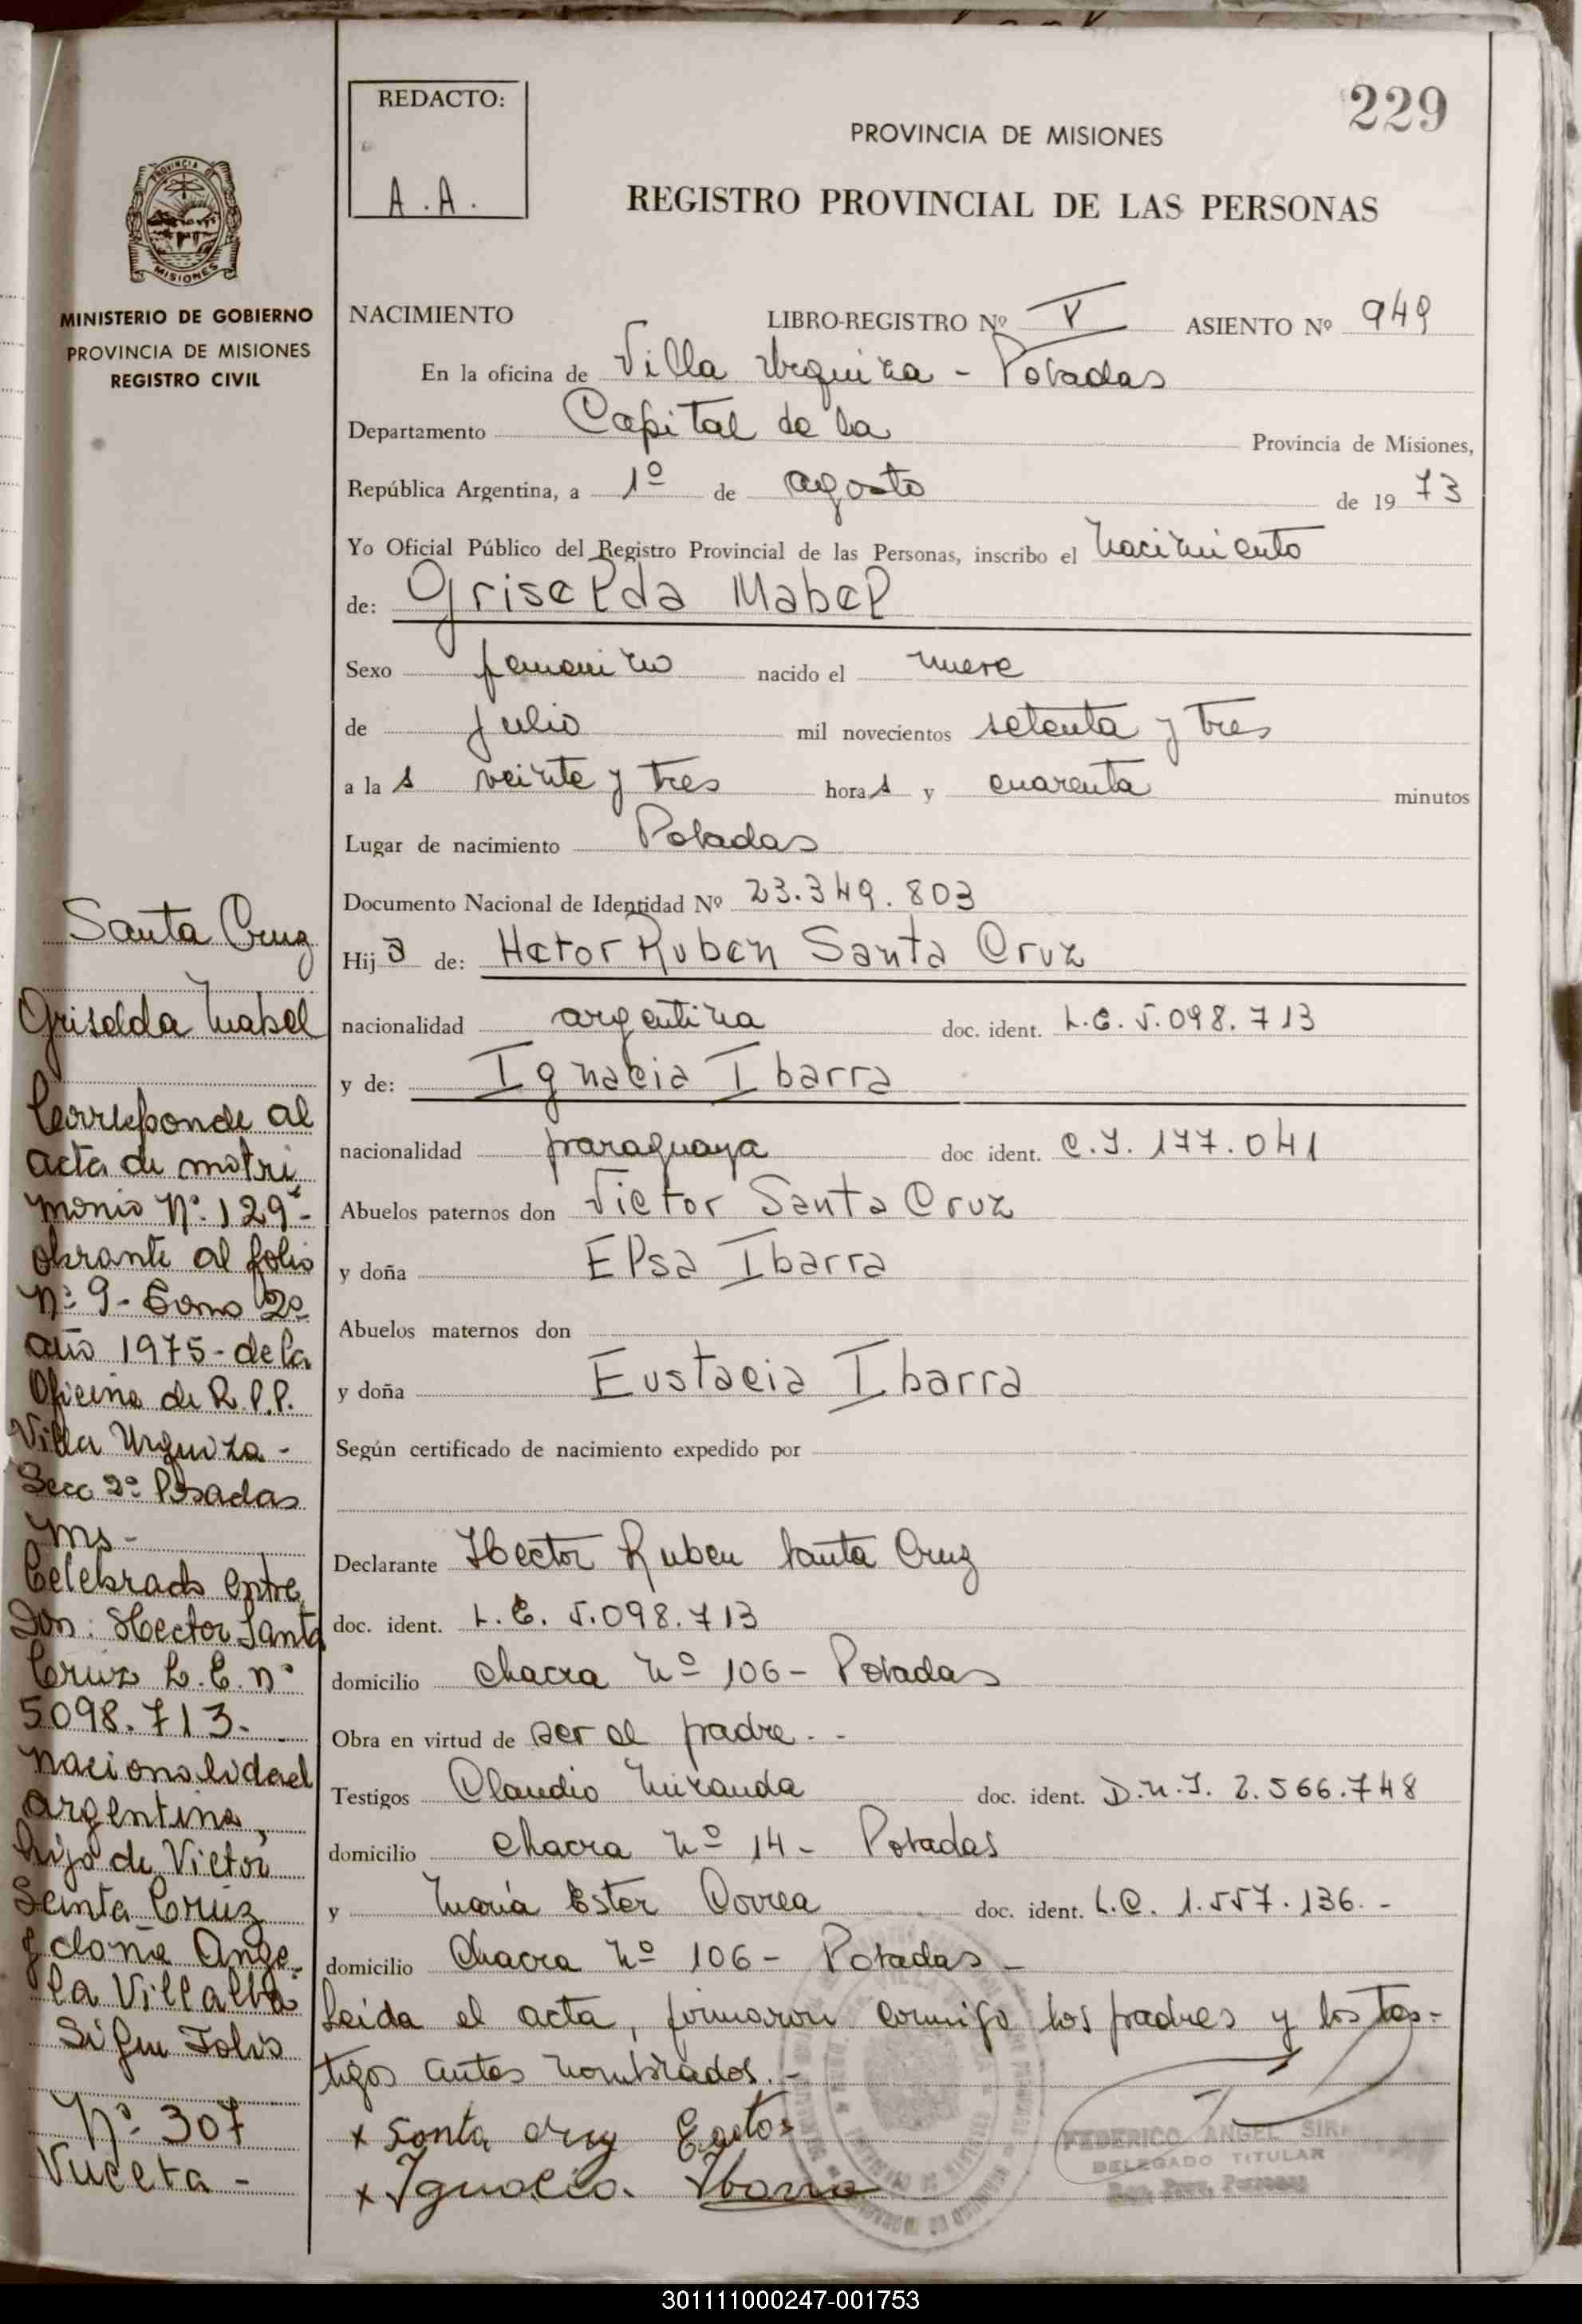 229
REDACTO:
A.A.
PROVINCIA DE MISIONES
REGISTRO PROVINCIAL DE LAS PERSONAS
PROVINCIA DE
MISIONES
MINISTERIO DE GOBIERNO
PROVINCIA DE MISIONES
REGISTRO CIVIL
NACIMIENTO LIBRO-REGISTRO Nº V ASIENTO Nº 949
En la oficina de Villa Urquiza - Posadas
Departamento Capital de la Provincia de Misiones,
República Argentina, a 1º de agosto de 19 73
Yo Oficial Público del Registro Provincial de las Personas, inscribo el nacimiento
de: Griselda Mabel
Sexo femenino nacido el nueve
de julio mil novecientos setenta y tres
a la s veinte y tres hora s y cuarenta minutos
Lugar de nacimiento Posadas
Documento Nacional de Identidad Nº 23.349.803
Hij a de: Hctor Ruben Santa Cruz
nacionalidad argentina doc. ident. L.E. 5.098.713
y de: Ignacia Ibarra
nacionalidad paraguaya doc ident. C.I. 177.041
Abuelos paternos don Victor Santa Cruz
y doña Elsa Ibarra
Abuelos maternos don
y doña Eustacia Ibarra
Según certificado de nacimiento expedido por
Declarante Hector Ruben Santa Cruz
doc. ident. L.E. 5.098.713
domicilio chacra nº 106 - Posadas
Obra en virtud de ser el padre. -
Testigos Claudio Miranda doc. ident. D.N.I. 2.566.748
domicilio chacra nº 14 - Posadas
y María Ester Correa doc. ident. L.C. 1.557.136. -
domicilio Chacra nº 106 - Posadas -
Leida el acta, firmaron conmigo los padres y los tes-
tigos antes nombrados. -
x Santa cruz
x Ignacia Ibarra
FEDERICO ANGEL
DELEGADO TITULAR
Santa Cruz
Griselda Mabel
Corresponde al
acta de matri
monio Nº. 129 -
obrante al folio
Nº 9 - Tomo 2º
año 1975 - de la
Oficina de R.P.P.
Villa Urquiza -
Secc 2º Posadas
Ms -
Celebrado entre
Don: Hector Santa
Cruz L.E. nº
5098.713.
nacionalidad
argentina,
hijo de Victor
Santa Cruz
y doña Ange-
la Villalba
Sigue Folio
Nº. 307
Vuelta -
301111000247-001753